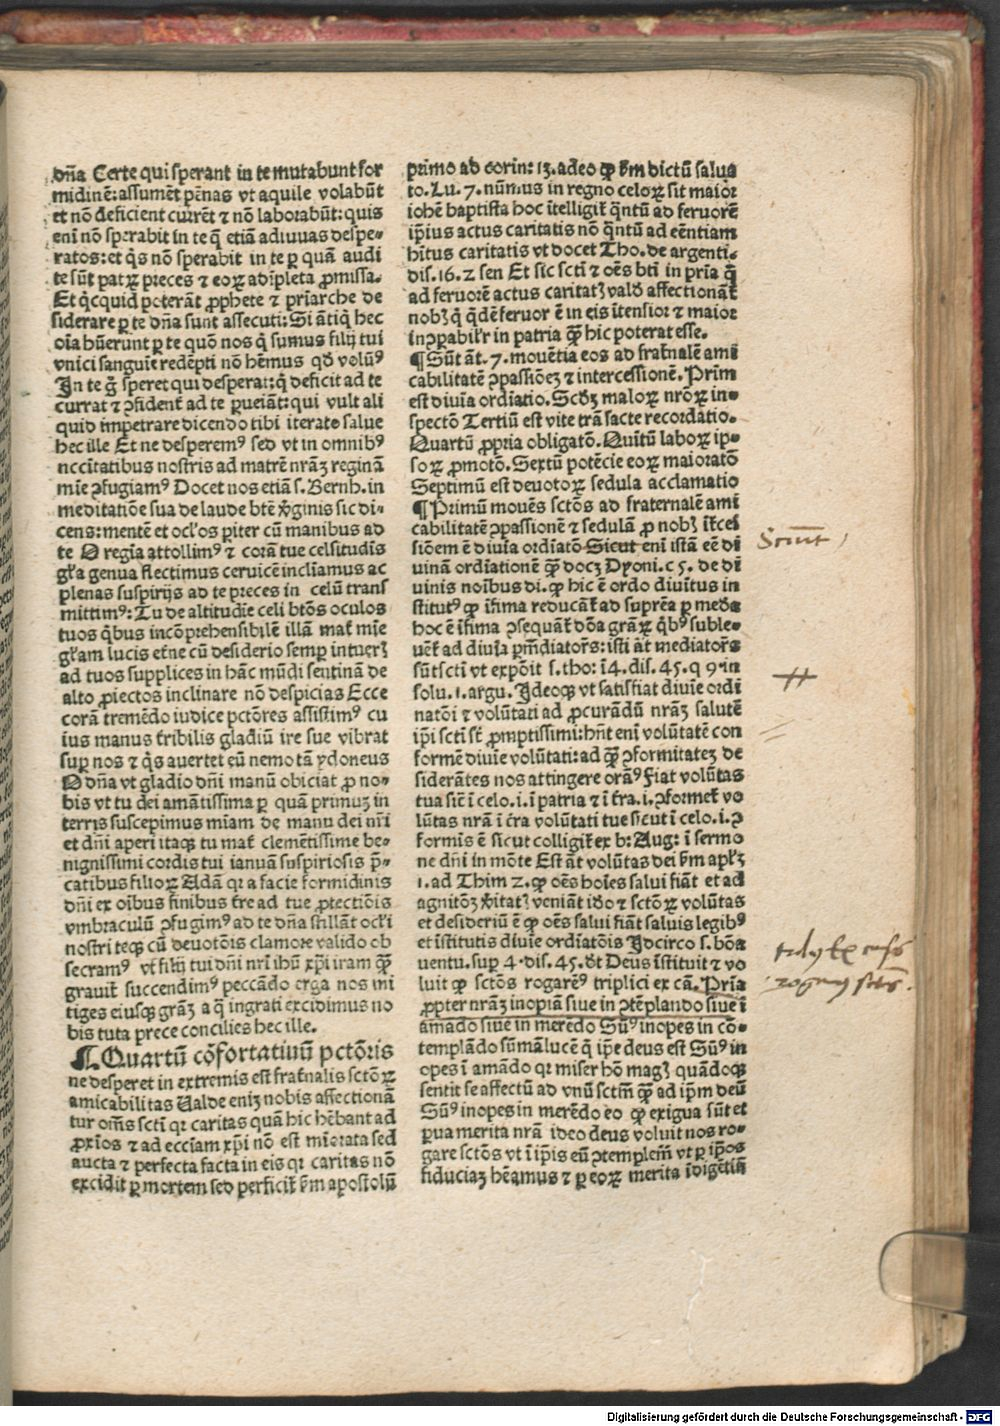 dña Certe qui sperant in te mutabunt for
midinē: assumēt pēnas vt aquile volabūt
et nō deficient currēt ⁊ nō laborabūt: quis
eni nō sperabit in te q̄ etiā adiuuas despe-
ratos: et q̇s nō sperabit in te ꝑ quā audi
te sūt patꝝ preces ⁊ eoꝝ adīpleta ꝓmissa.
Et q̇cquid poterāt ꝓphete ⁊ pr̄iarche de
siderare ꝑ te dña sunt assecuti: Si ātiq̇ hec
oīa hūerunt ꝑ te quō nos q̇ sumus filij tui
vnici sanguīe redēpti nō hēmus qd̄ volūꝰ
In te g̊ speret qui desperat: q̇ deficit ad te
currat ⁊ ꝯfidenť ad te ꝑueiāt: qui vult ali
quid impetrare dicendo tibi iterato salue
hec ille Et ne desperemꝰ sed vt in omnibꝰ
nccītatibus nostris ad matrē nrāȝ reginā
mīe ꝯfugiamꝰ Docet nos etiā s. Bernh. in
meditatiōe sua de laude btē ꝟginis sic di-
cens: mentē et ocl'os ꝑiter cū manibus ad
te O regīa attollimꝰ ⁊ corā tue celsitudīs
gľa genua flectimus ceruicē inclīamus ac
plenas suspirijs ad te preces in celū trans
mittimꝰ: Tu de altitudīe celi btōs oculos
tuos q̇bus incōprehensibilē illā mať mīe
gľam lucis etr̄ne cū desiderio semꝑ intuerȝ
ad tuos supplices in hāc mūdi sentinā de
alto ꝓiectos inclinare nō despicias Ecce
corā tremēdo iudice pctōres assistimꝰ cu
ius manus ťribilis gladiū ire sue vibrat
suꝑ nos ⁊ q̇s auertet eū nemo tā ydoneus
O dña vt gladio dñi manū obiciat ꝓ no-
bis vt tu dei amātissima ꝑ quā primuȝ in
terris suscepimus miam de manu dei nr̄i
et dñi aperi itaqȝ tu mať clemētissime be-
nignissimi cordis tui ianuā suspiriosis p̄-
catibus filioꝝ Adā qi a facie formidinis
dñi ex oībus finibus ťre ad tue ꝓtectiōis
vmbraculū ꝯfugimꝰ ad te dña stillāt ocl'i
nostri teqȝ cū deuotōis clamore valido ob
secramꝰ vt filij tui dñi nr̄i ihū xp̄i iram quā
grauiť succendimꝰ peccādo erga nos mi
tiges eiusqȝ grāȝ a q̄ ingrati excidimus no
bis tuta prece concilies hec ille.
¶ Quartū cōfortatiuū pctōris
ne desperet in extremis est fraťnalis sctōꝝ
amicabilitas Valde eniȝ nobis affectionā
tur om̄s sctī qi caritas quā hic hēbant ad
ꝓxīos ⁊ ad ecciam xp̄i nō est miorata sed
aucta ⁊ perfecta facta in eis qi caritas nō
excidit ꝑ mortem sed perficiť ẜm apostolū
primo ad corin: 13. adeo ꝙ ẜm dictū salua
to. Lu. 7. nūmus in regno celoꝝ sit maior
iohē baptista hoc ītelligiť q̄ntū ad feruorē
ip̄ius actus caritatis nō q̄ntū ad eēntiam
hītus caritatis vt docet Tho. de argenti-
dis. 16. 2 sen Et sic sctī ⁊ oēs btī in pr̄ia q̄
ad feruorē actus caritatȝ valđ affectionāť
nobȝ q̇ q̇dē feruor ē in eis ītensior ⁊ maior
inꝯꝑabiľr in patria quā hic poterat esse.
¶ Sūt āt. 7. mouētia eos ad fraťnalē ami
cabilitatē ꝯpassiōeȝ ⁊ intercessionē. Prim̄
est diuīa ordīatio. Scđȝ maloꝝ nr̄oꝝ in-
spectō Tertiū est vite trāsacte recordatio.
Quartū ꝓpria obligatō. Quītū laboꝝ ip-
soꝝ ꝓmotō. Sextū potēcie eoꝝ maioratō
Septimū est deuotoꝝ sedula acclamatio
¶ Primū mouēs sctōs ad fraternalē ami
cabilitatē ꝯpassionē ⁊ sedulā ꝓ nobȝ ītceſ
siōem ē diuīa ordīatō Sicut eni istā eē di
uinā ordīationē quā docȝ Dyoni. c 5. de di
uinis noībus di. ꝙ hic ē ordo diuītus in
stitutꝰ ꝙ īfima reducāť ad suprēa ꝑ međa
hoc ē īfima ꝯsequāť dōa grāꝝ q̇bꝰ suble-
uēť ad diuīa ꝑm̄diatōrs: isti āt mediatōrs
sūt sctī vt expōit s. tho: i4. dis. 45. q 9 in
solu. 1. argu. Ideoqȝ vt satisfiat diuīe ordi
natōi ⁊ volūtati ad ꝓcurādū nrāȝ salutē
ip̄i sctī st̄ ꝓmptissimi: hn̄t eni volūtatē con
formē diuīe volūtati: ad quā ꝯformitateȝ de
siderātes nos attingere orāꝰ Fiat volūtas
tua sic̄ ī celo. i. ī patria ⁊ ī ťra. i. ꝯformeť vo
lūtas nrā ī ťra volūtati tue sicut ī celo. i. ꝯ
formis ē sicut colligiť ex b: Aug: ī sermo
ne dñi in mōte Est āt volūtas dei ẜm apľȝ
1. ad Thim 2. ꝙ oēs hoīes salui fiāt et ad
agnitōȝ ꝟitatȝ veniāt iđo ⁊ sctōꝝ volūtas
et desideriū ē ꝙ oēs salui fiāt saluis legibꝰ
et īstitutis diuīe ordīatōis Idcirco s. bōa
uentu. suꝑ 4. dis. 45. đt Deus īstituit ⁊ vo
luit ꝙ sctōs rogarēꝰ triplici ex cā. Pr̄īa
ꝓpter nrāȝ inopiā siue in ꝯtēplando siue ī
amādo siue in merēdo Sūꝰ inopes in cō-
templādo sūmā lucē q̄ ip̄e deus est Sūꝰ in
opes ī amādo qi miser hō magȝ quādoqȝ
sentit se affectū ad vnū sctm̄ quā ad ip̄m deū
Sūꝰ inopes in merēdo eo ꝙ exigua sūt et
ꝑua merita nrā ideo deus voluit nos ro-
gare sctōs vt ī ip̄is eū ꝯtemplem̄ vt ꝑ ip̄os
fiduciaȝ hēamus ⁊ ꝑ eoꝝ merita īdigētiā
Digitalisierung gefördert durch die Deutsche Forschungsgemeinschaft - DFG